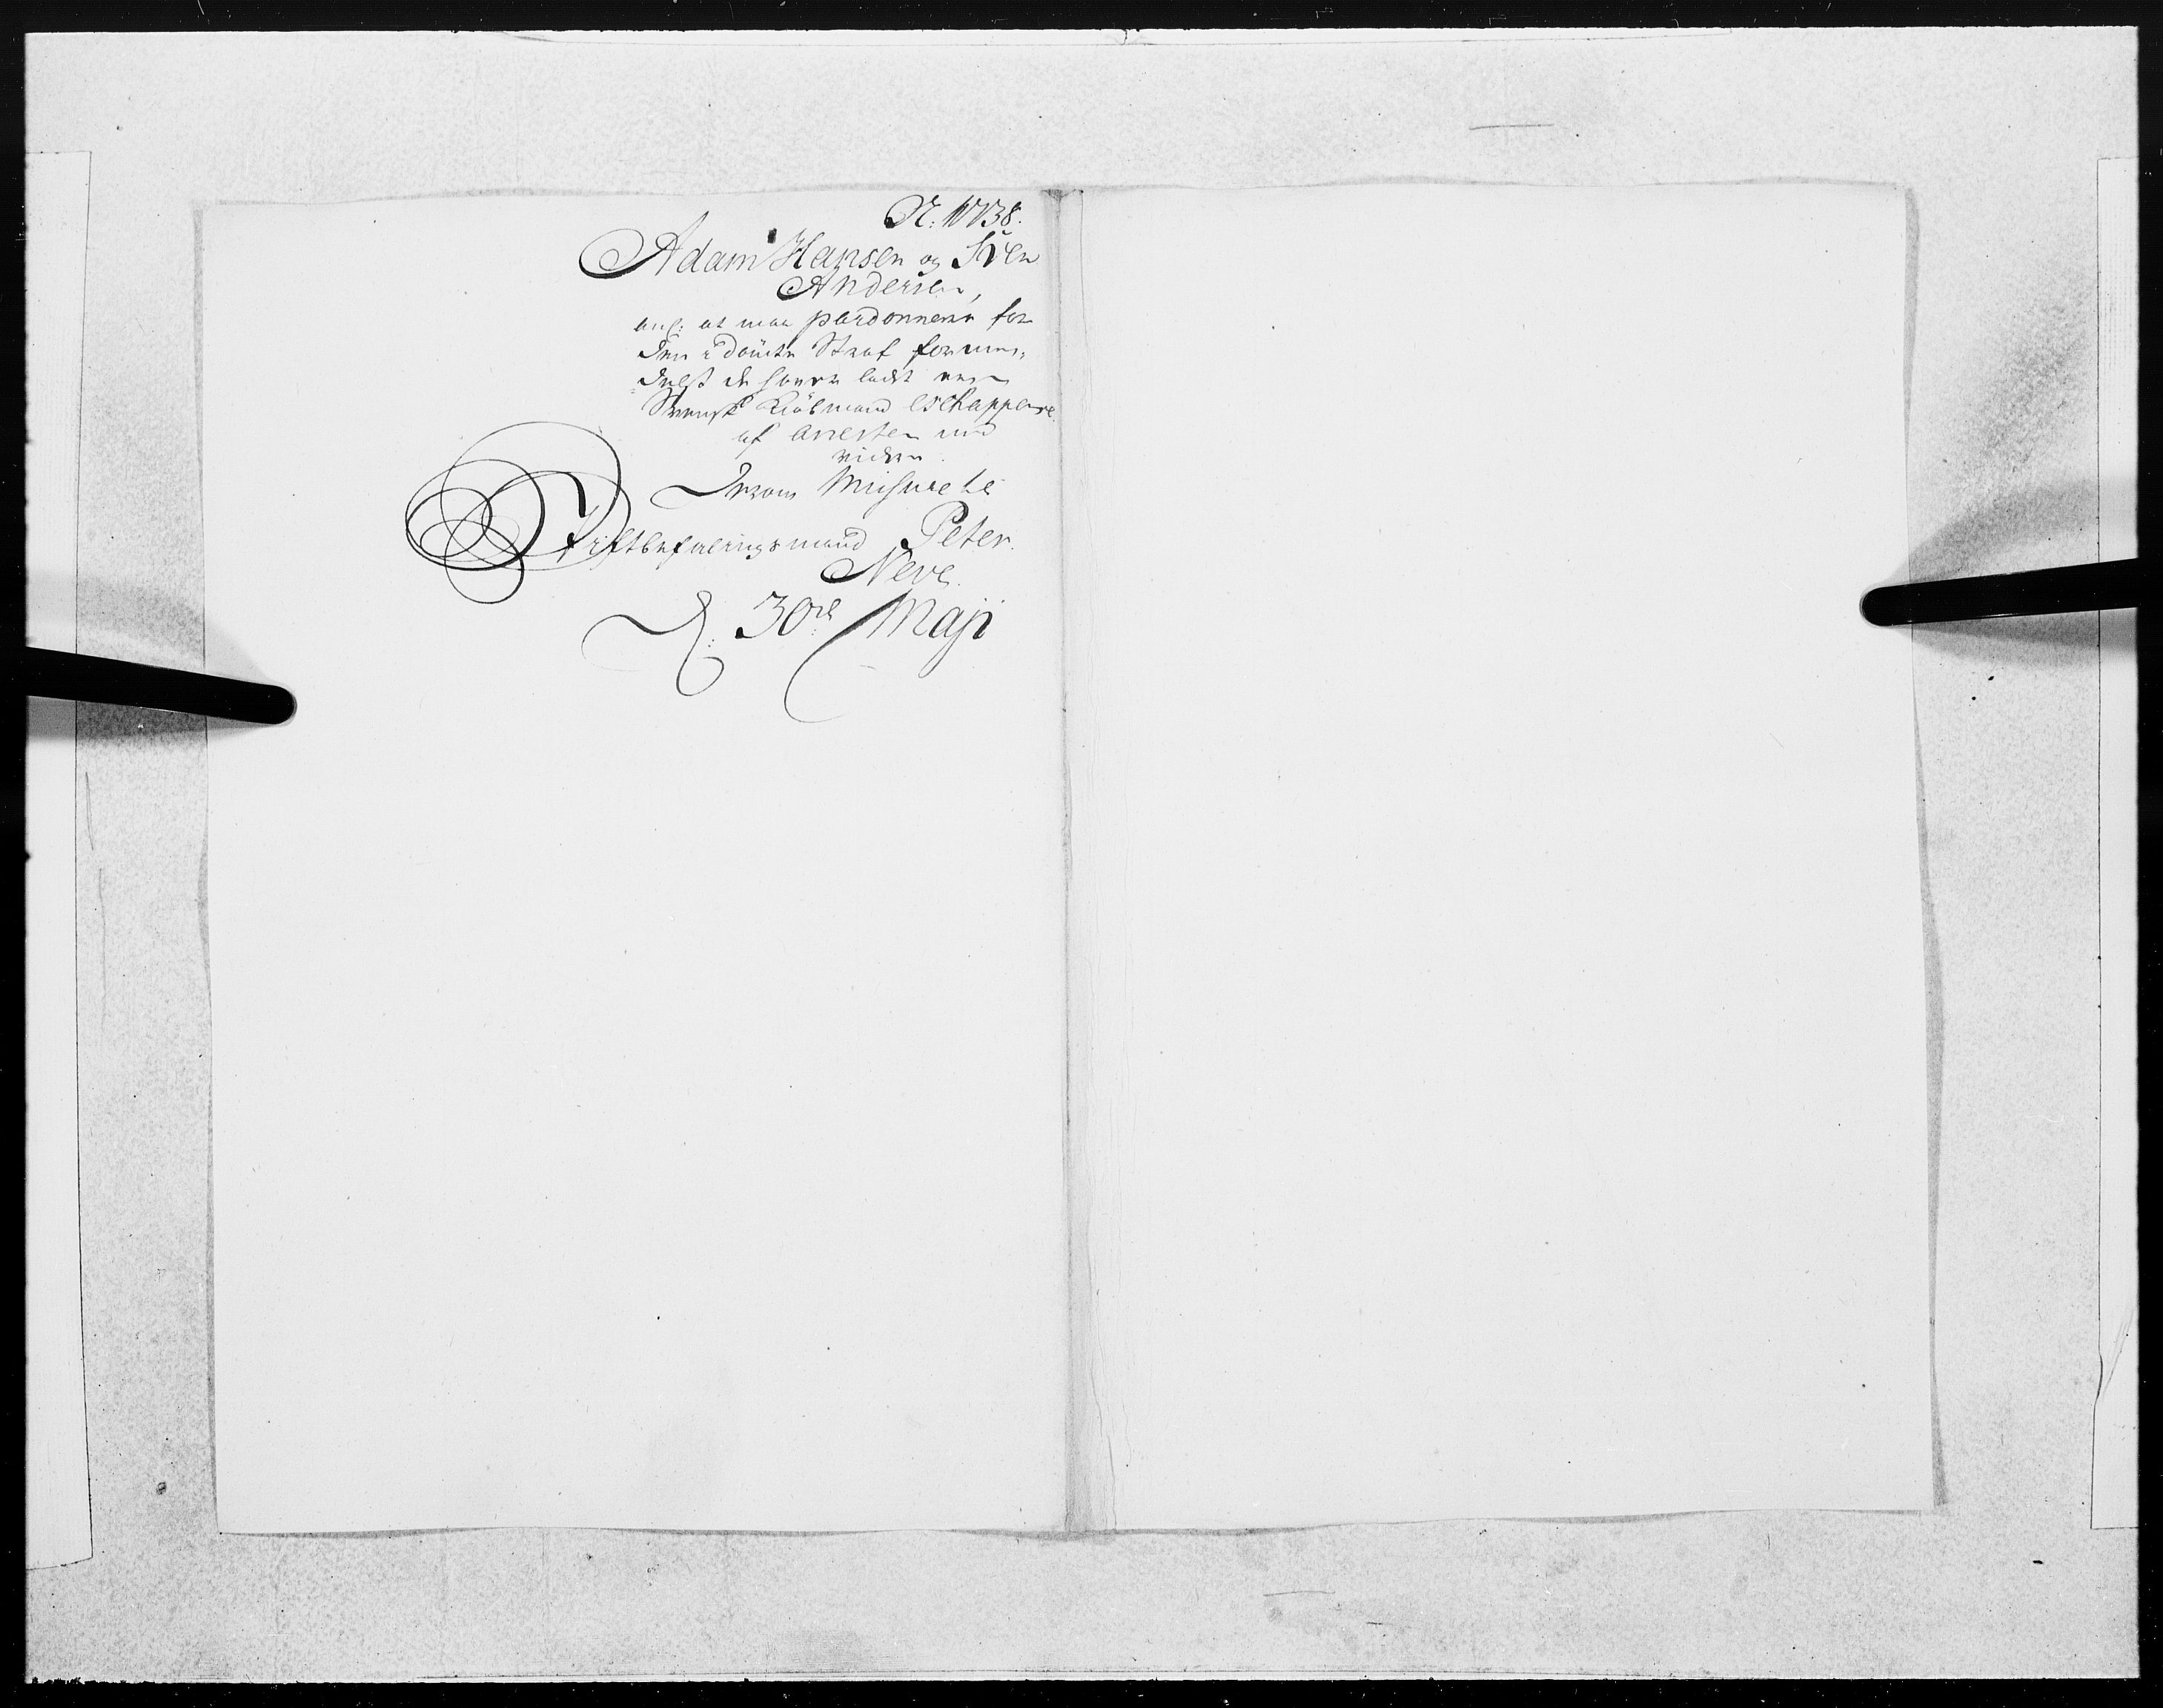 N: 1738.
Adam Hansen og Sven
Andersen,
ans: at maa pardonneris for
den idömte Straf formee-
delst de haver ladet een
Svensk Kiöbmand eschappere
af arresten med
videre
Herom
Stiftbefalingsmand Peter
Neve.
D: 30te Maji